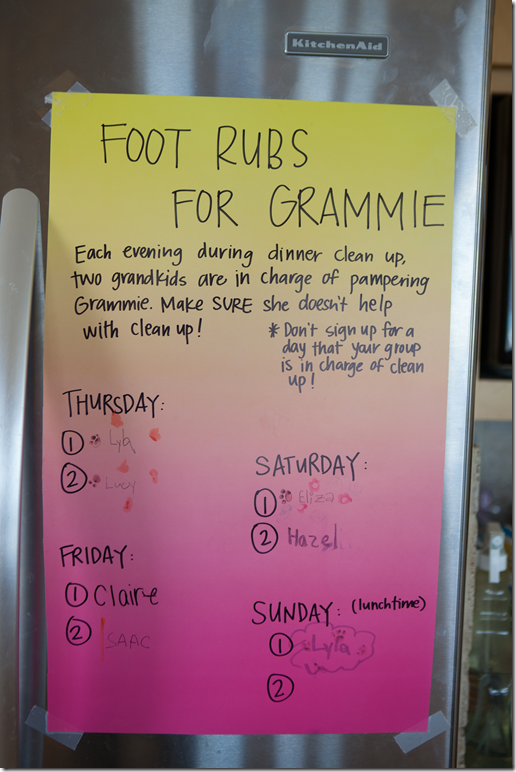 KitchenAid
FOOT RUBS
FOR GRAMMIE
Each evening during dinner clean up,
two grandkids are in charge of pampering
Grammie. Make SURE she doesn't help
with clean up!
* Don't sign up for a
day that your group
is in charge of clean
up!
THURSDAY:
1 Lyla
2 Lucy
FRIDAY:
1 Claire
2 ISAAC
SATURDAY:
1 Eliza
2 Hazel
SUNDAY: (lunchtime)
1
2